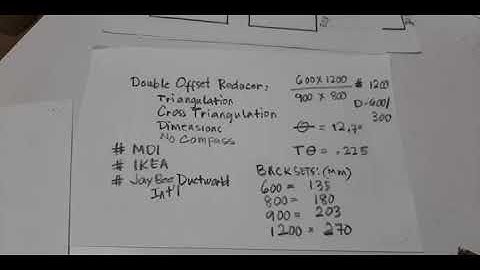 Double Offset Reducer,
Triangulation
Cross Triangulation
Dimensions
No Compass
# MDI
# IKEA
# JayBee Ductworld
Int'l
600 x 1200 # 1200
900 x 800
D-600/
300
θ = 12.7°
Tθ = .225
BACKSETS: (MM)
600 = 135
800 = 180
900 = 203
1200 = 270